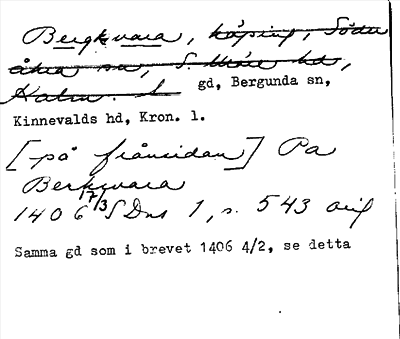 Bergkvara, köping, Söder
åkra sn, S. Möre hd,
Kalm. l. gd, Bergunda sn,
Kinnevalds hd, Kron. l.
[på frånsidan] Pa
Berkwara
1406 17/3 SDns 1, s. 543 orig
Samma gd som i brevet 1406 4/2, se detta